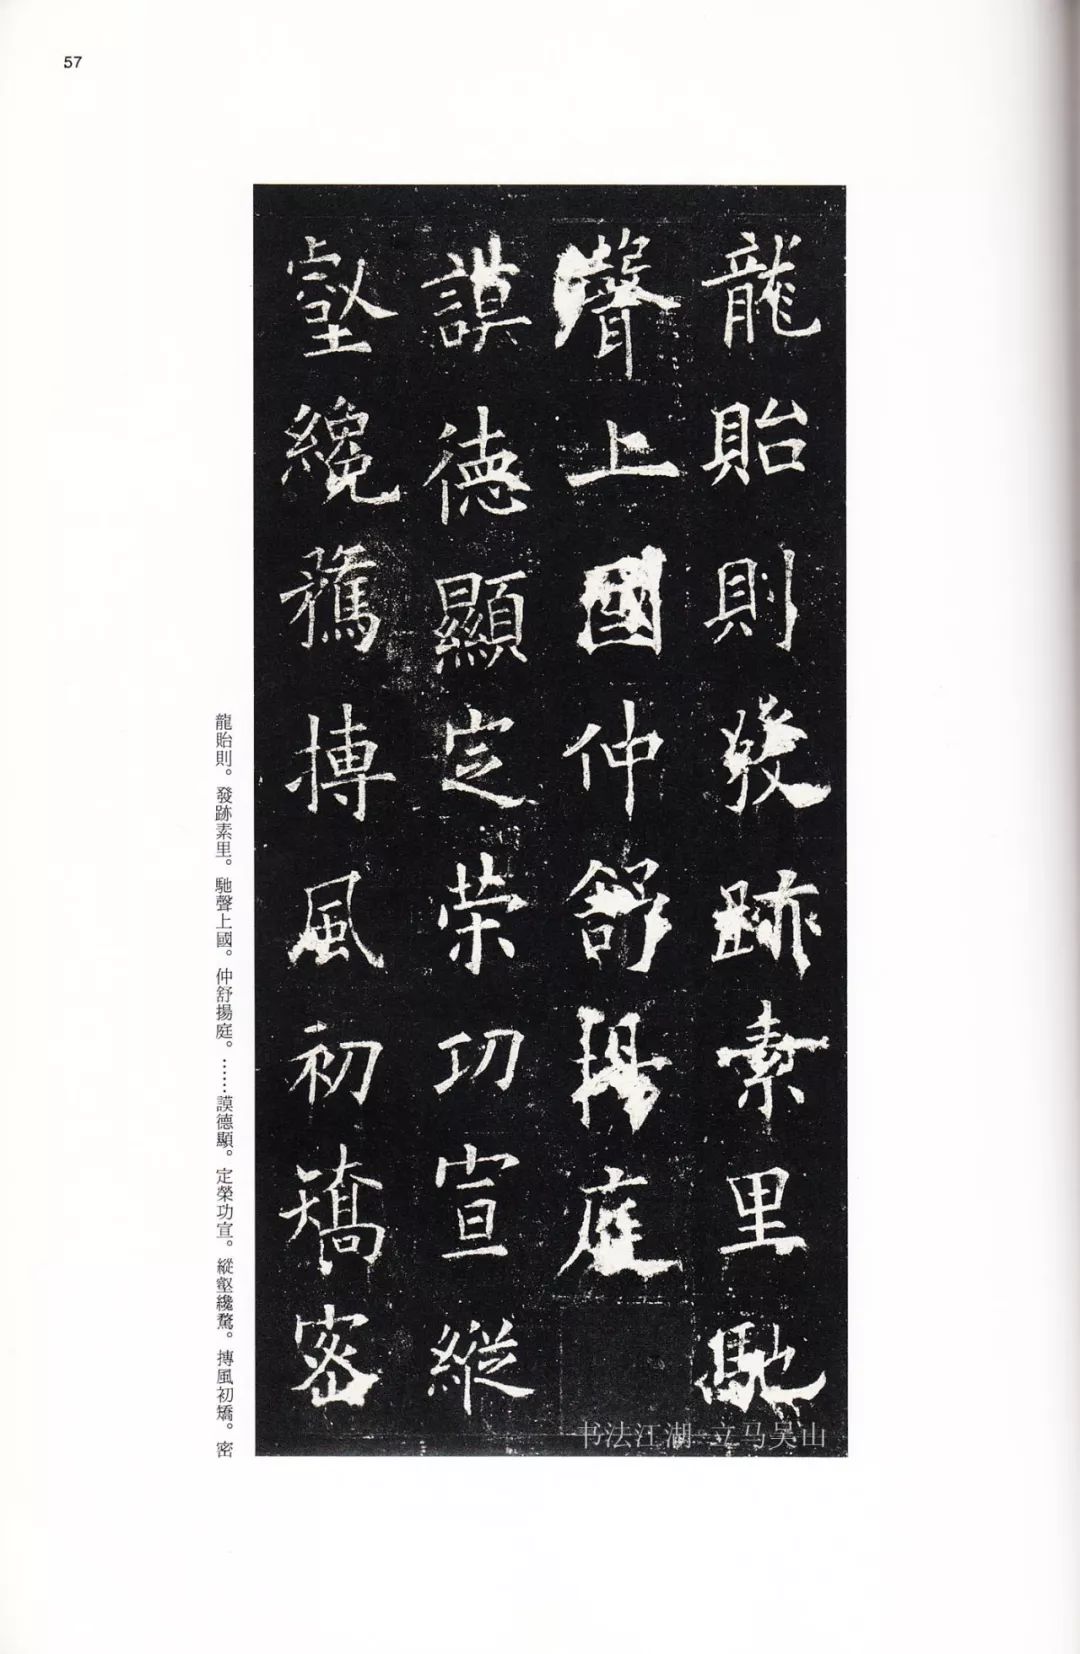 57
龍貽則發跡素里馳
聲上國仲舒揚庭
謨德顯定荣功宣縱
壑纔騖摶風初矯密
龍貽則。發跡素里。馳聲上國。仲舒揚庭。……謨德顯。定榮功宣。縱壑纔騖。摶風初矯。密
书法江湖-立马吴山